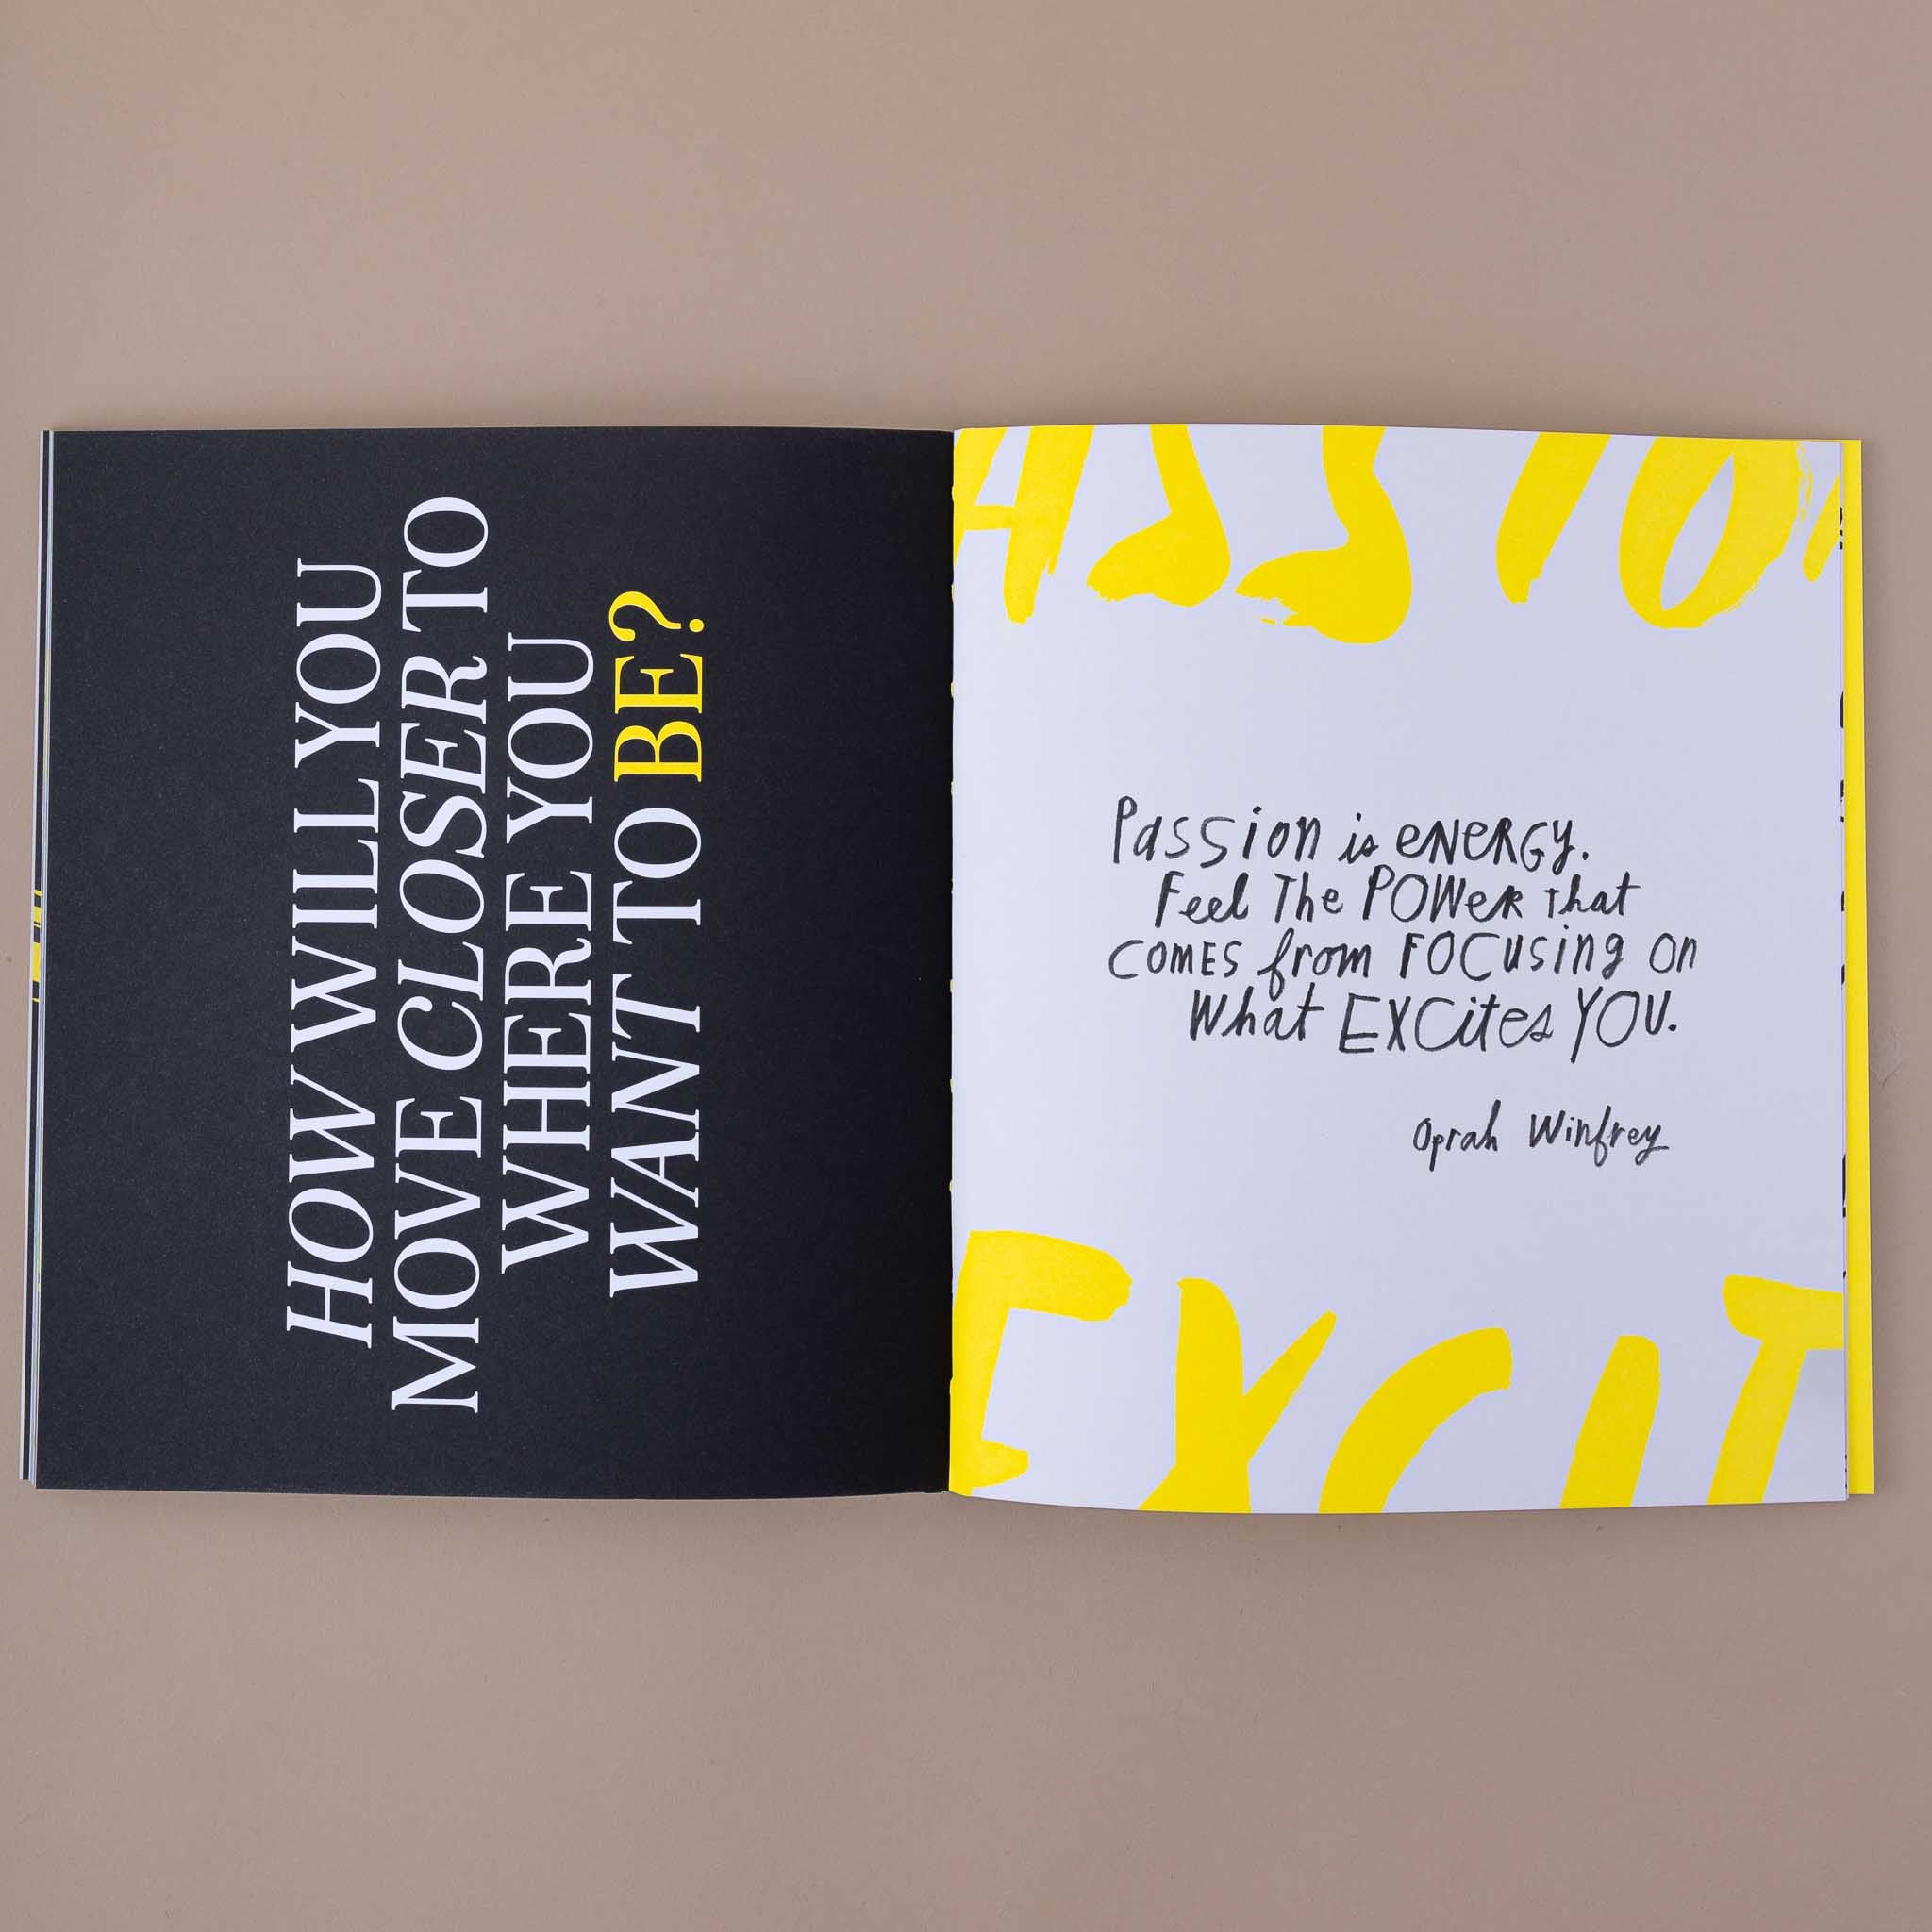 HOW WILL YOU
MOVE CLOSER TO
WHERE YOU
WANT TO BE?
ASSION
Passion is eNeRGy.
Feel The POWeR That
COMES from FOCusing On
What EXCites YOU.
Oprah Winfrey
EXCIT